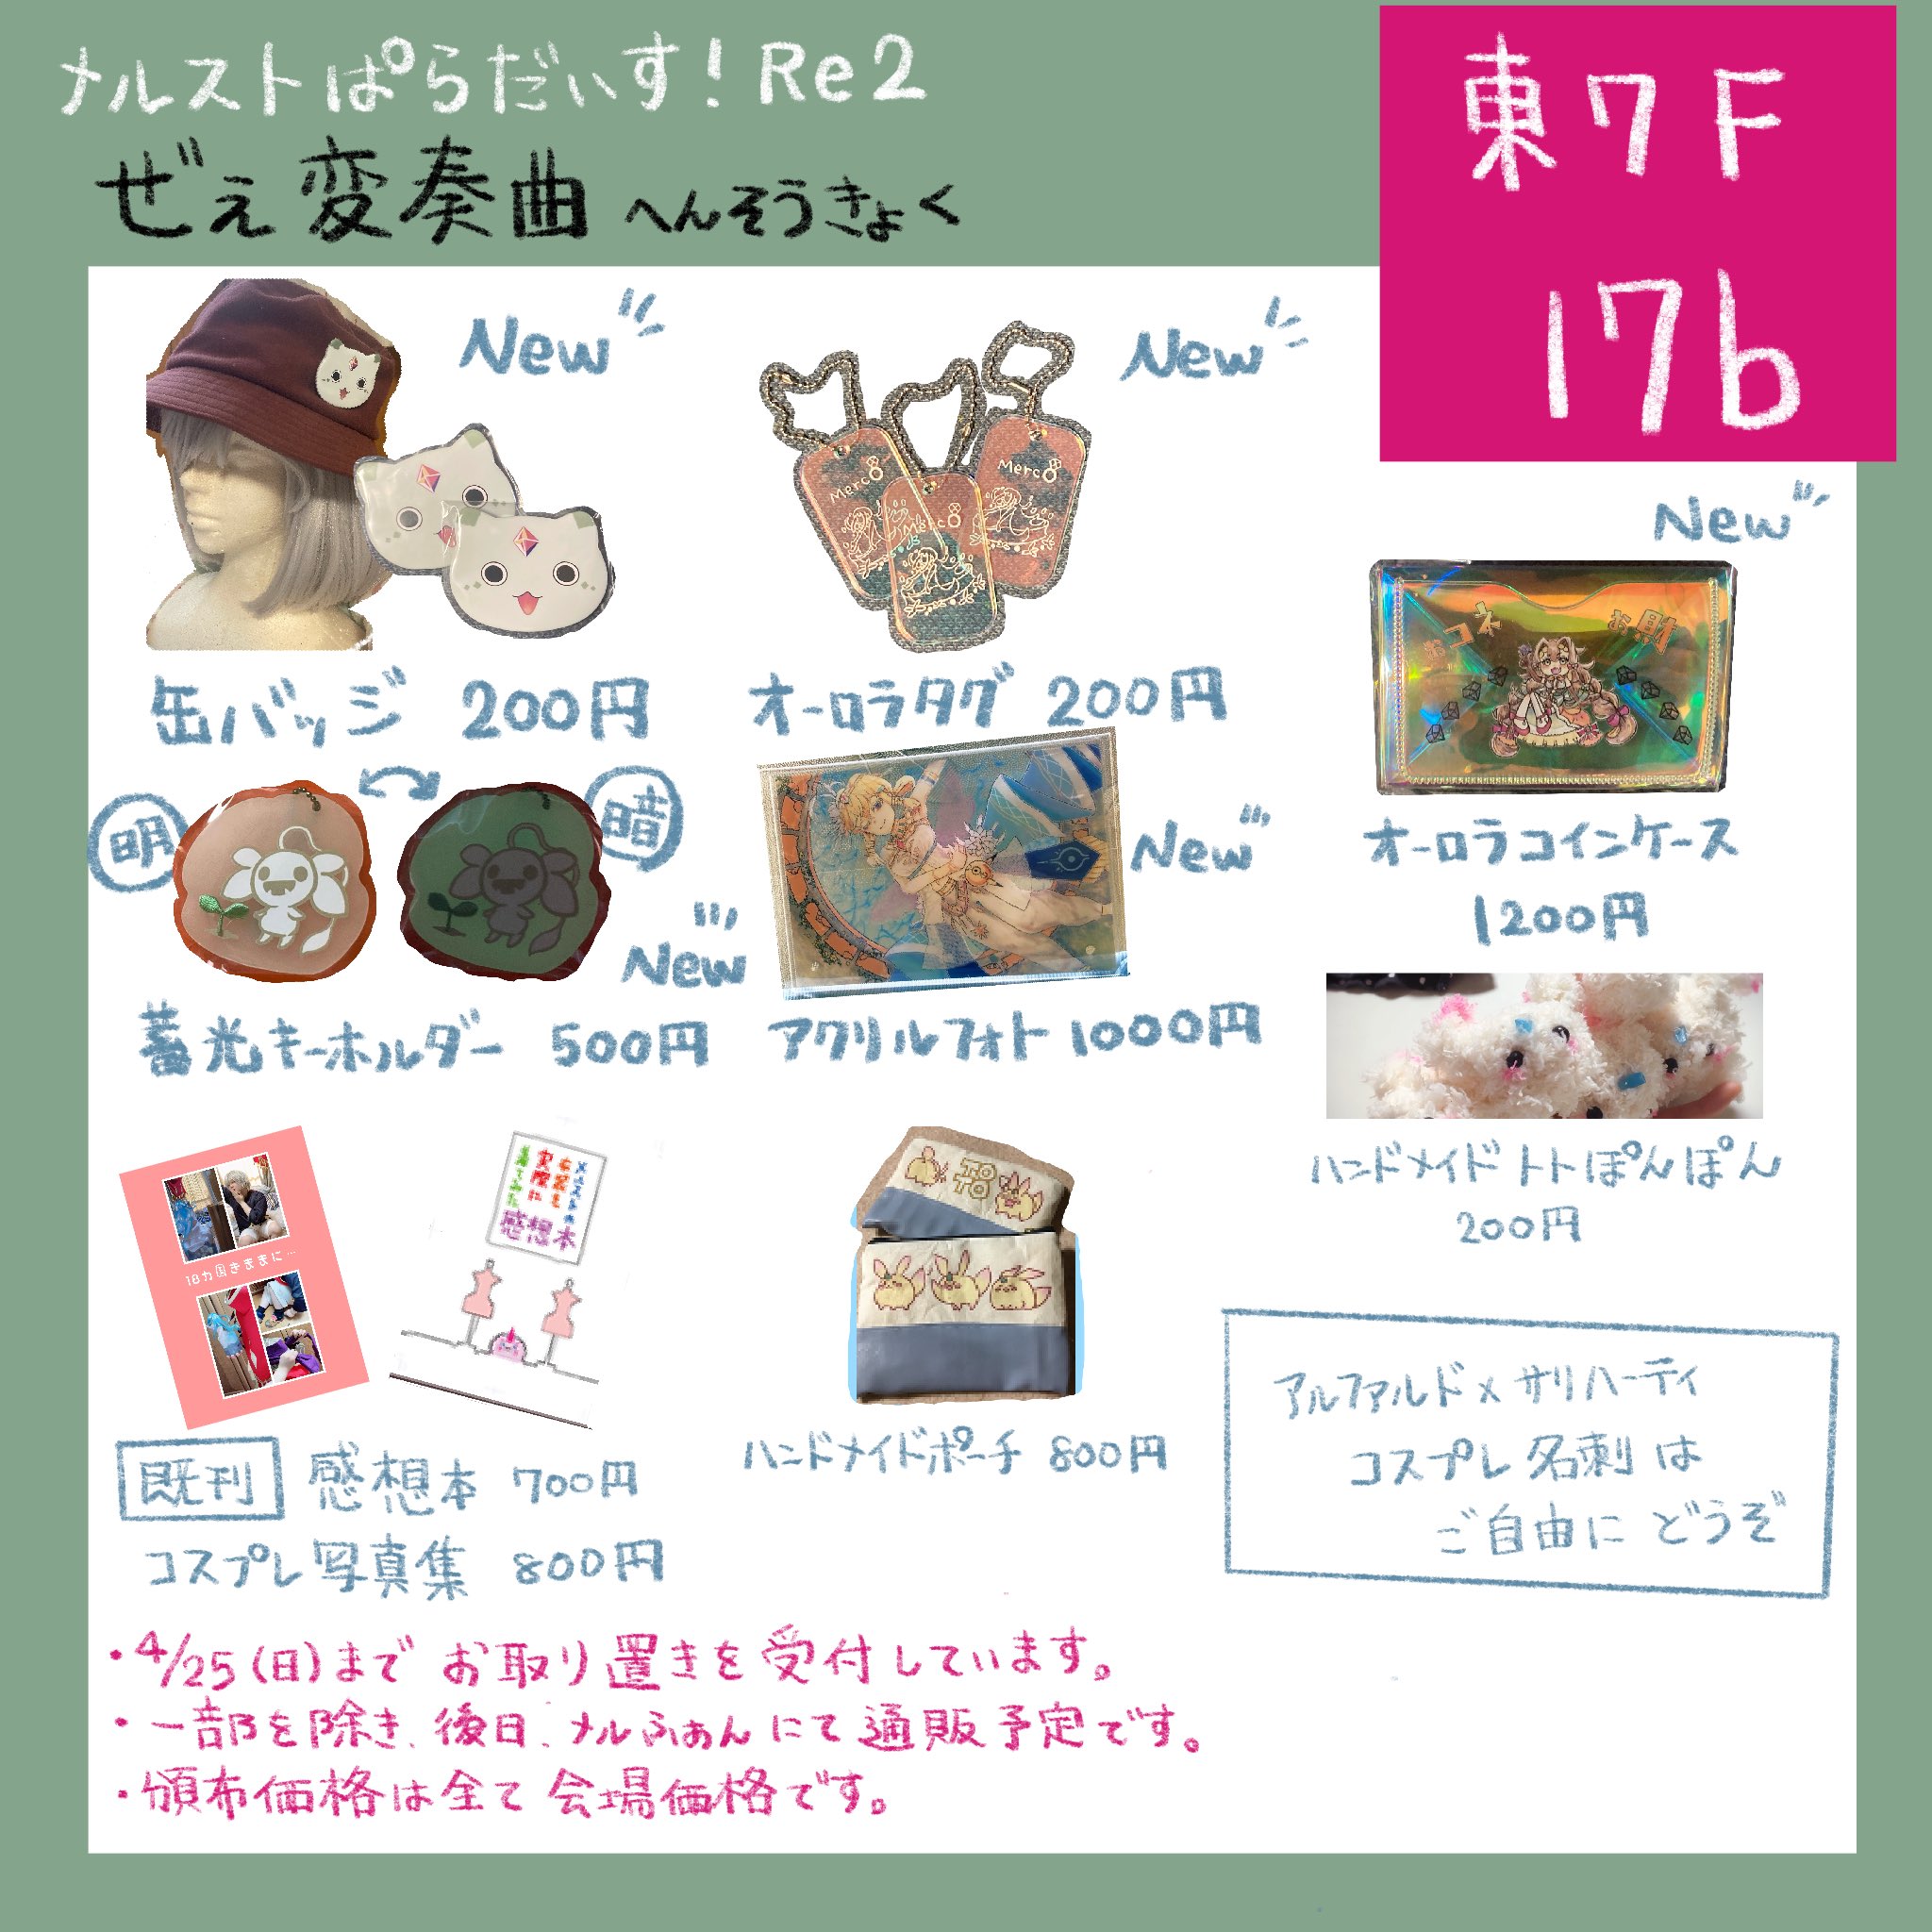 メルストぱらだいす！Re2
ぜぇ変奏曲 へんそうきょく
東7F
17b
New
缶バッジ 200円
New
Merc8
Merc8
Merc8
オーロラタグ 200円
New
オーロラコインケース
1200円
明
暗
New
蓄光キーホルダー 500円
New
アクリルフォト 1000円
ハンドメイド トトぽんぽん
200円
18ヵ国きままに…
感想本
既刊 感想本 700円
コスプレ写真集 800円
TO
TO
ハンドメイドポーチ 800円
アルファルド×サリハーティ
コスプレ名刺は
ご自由にどうぞ
・4/25(日)まで お取り置きを受付しています。
・一部を除き、後日、メルふぁんにて通販予定です。
・頒布価格は全て会場価格です。